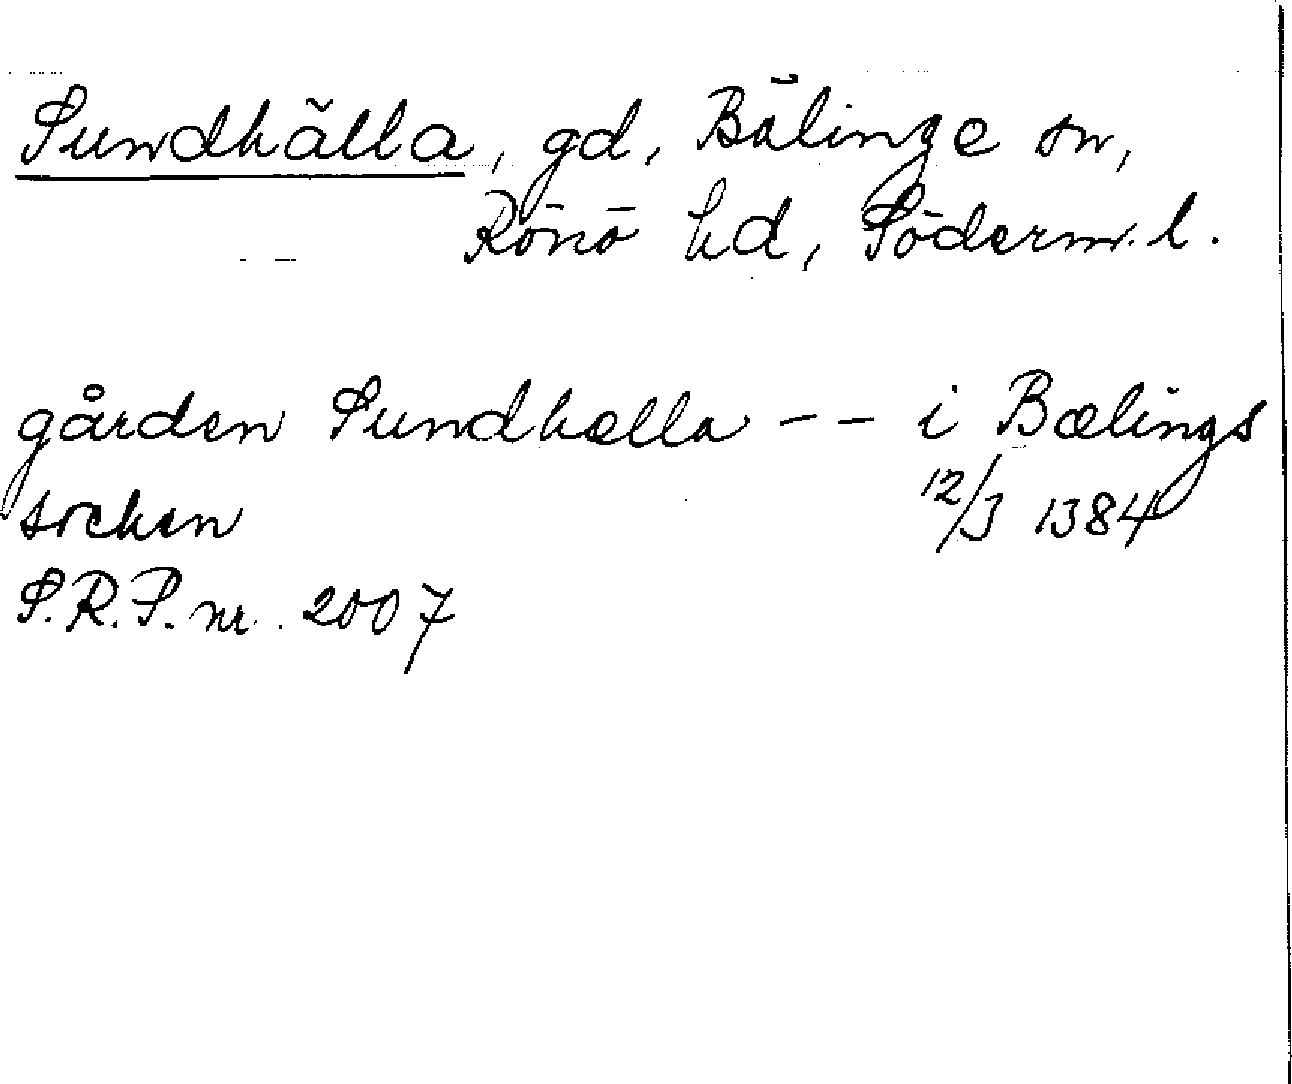 Sundhälla, gd, Bälinge sn,
Rönö hd, Söderm. l.
gården Sundhælla -- i Bælings
socken 12/3 1384
S.R.P. nr. 2007